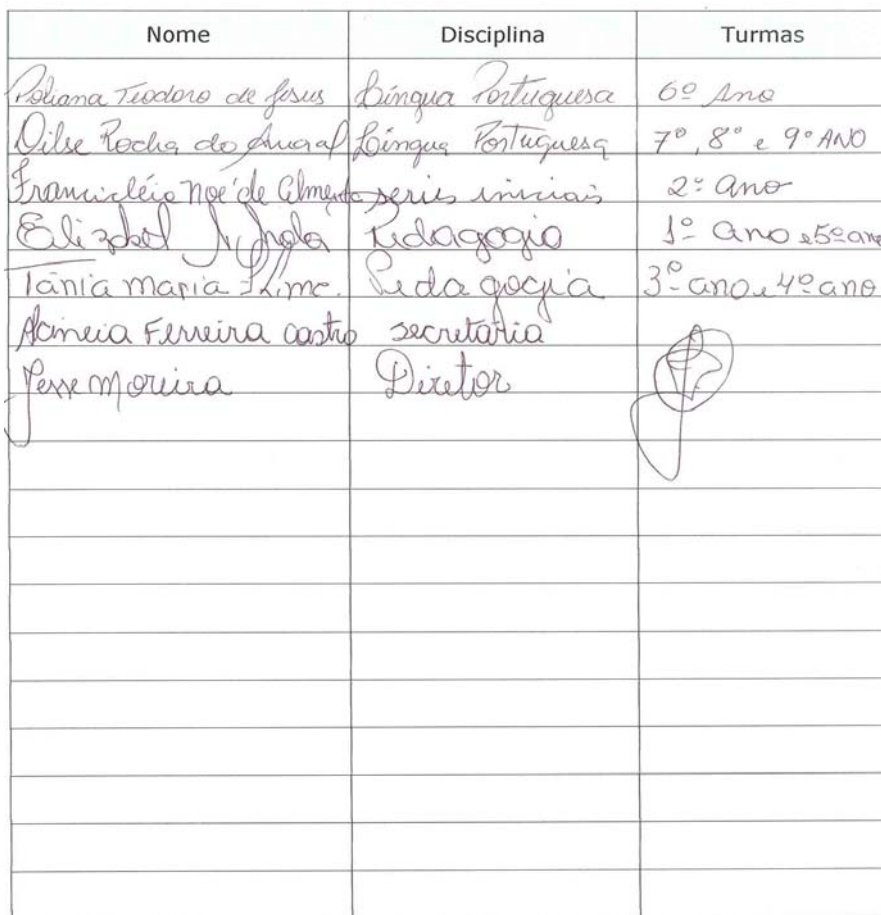 Nome Disciplina Turmas
Poliana Teodoro de Jesus Língua Portuguesa 6º Ano
Dilse Rocha do Amaral Língua Portuguesa 7º, 8º e 9º ANO
Francicléio Noé de Almeida series iniciais 2º ano
Elizabel N. Pedagogia 1º ano e 5º ano
Tânia maria Pedagogia 3º ano e 4º ano
Ferreira castro secretária
Jesse Moreira Diretor